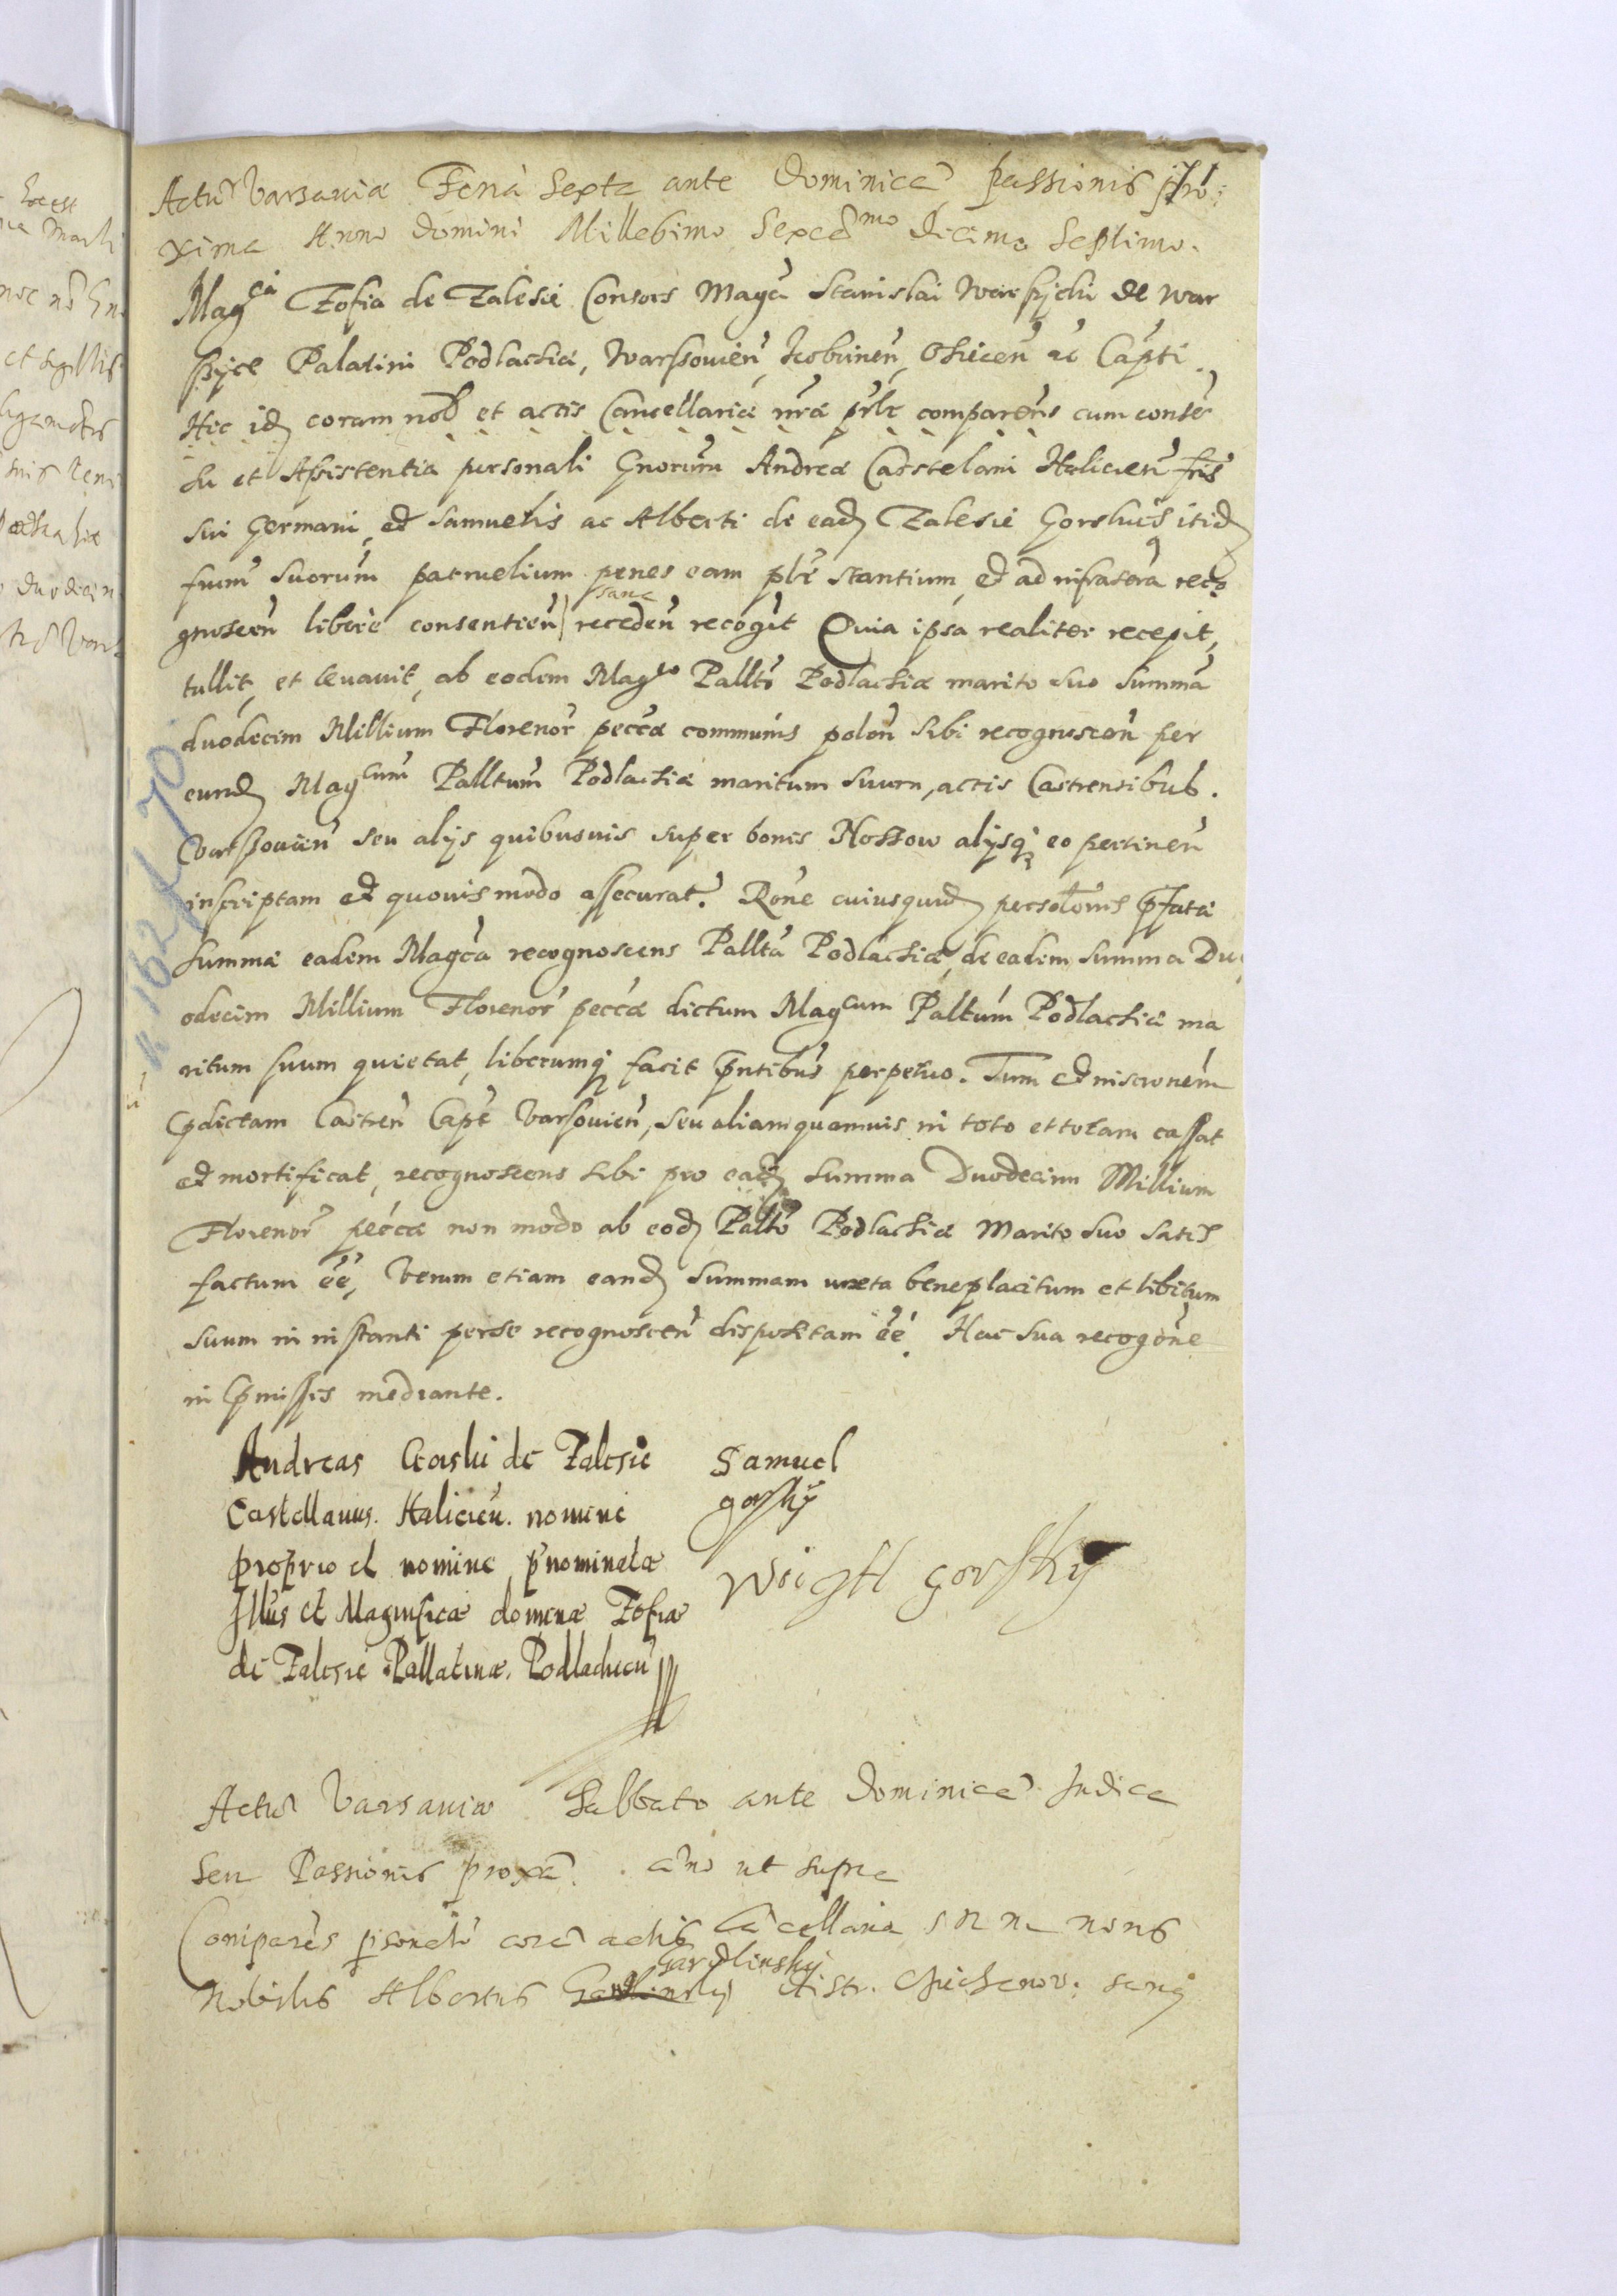 Actũ Varsauiæ Feria Sexta ante Dominicã Passionis pro:
xima Anno Domini Millesimo Sexcẽ^mo Decimo Septimo.
Mag^ca Zofia de Zalesie Consors Magci Stanislai Warszycki de War
szyce Palatini Podlachiæ, Warssouien̄, Kobrinen̄, Osicen̄ ac Capti.
Hic id coram nob et actis Cancellariæ nrã prlr comparens cum consẽ
su et Assistentia personali Gnorum Andreæ Castelani Halicien̄ fris
sui Germani, et Samuelis ac Alberti de ead Zalesie Gorskies itid
frum suorum patruelium penes eam plr stantium, et ad infrascra reco
sane
gnoscen̄ libere consentien̄ receden̄ recogit Quia ipsa realiter recepit,
tullit, et leuauit, ab eodem Mag^co Palltõ Podlachiæ marito suo summã
duodecim Millium Florenor̃ peccæ communis polon̄ sibi recognoscen̄ per
eund Mag^cum Palltum Podlachiæ maritum suum, actis Castrensibus.
Varssouien̄ seu alijs quibusuis super bonis Nossow alijsq eo pertinen̄
inscriptam et quouis modo assecurat. Rõne cuiusquid persolõnis pfatæ
summæ eadem Magca recognoscens Pallta Podlachiæ, de eadem summa Du
odecim Millium Florenor̃ peccæ dictum Mag^cum Paltum Podlachiæ ma
ritum suum quietat, liberumq facit pntibus perpetuo. Tum et inscrionem
pdictam Castren̄ Capt Varsouien̄, seu aliam quamuis in toto et totam cassat
et mortificat, recognoscens sibi pro ead summa Duodecim Millium
Florenor̃ peccæ non modo ab eod Paltõ Podlachiæ Marito suo satis
factum ee, Verum etiam eand summam iuxta beneplacitum et libitum
suum in instanti per se recognoscen̄ dispositam ee. Hac sua recogõne
in pmissis mediante.
Andreas Gorski de Zalesie
Castellanus. Halicien̄. nomine
proprio et nomine prnominatæ
Illus et Magnificæ dominæ Zofiæ
de Zalesie Pallatinæ. Podlachien̄
Samuel
gorskÿ
Woicjtl gorskÿ
Actũ Varsauiæ Sabbato ante Dominicã Judica
seu Passionis proxã. año ut supra
Comparẽs psonalr̃ corã actis Cãcellariæ S R M nons
Gardlinskij
Nobilis Albertus Gardlinskij distr.
k 162 f 70